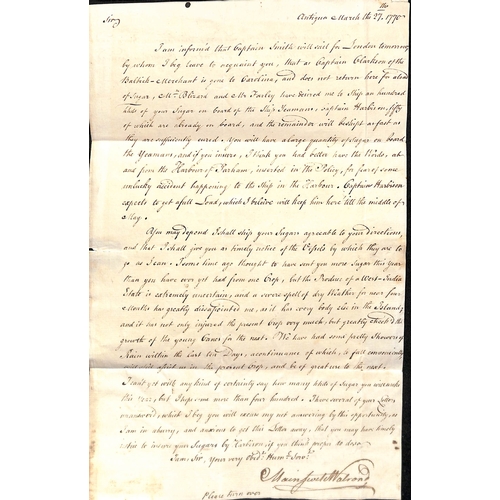 Antigua March the 27th. 1770
Sir,
I am informed that Captain Smith will sail for London tomorrow
by whom I beg leave to acquaint you, that as Captain Clarkson of the
British-Merchant is gone to Carolina, and does not return here for a load
of Sugar, Mr. Blizard and Mr. Farley have desired me to Ship an hundred
Hhds of your Sugar on board of the Ship Yeamans, Captain Harbison, fifty
of which are already on board, and the remainder will be shipt as fast as
they are sufficiently cured. You will have a large quantity of Sugar on board
the Yeamans, and if you insure, I think you had better have the Words, at
and from the Harbour of Parham, inserted in the Policy, for fear of some
unlucky accident happening to the Ship in the Harbour. Captain Harbison
expects to get a full Load, which I believe will keep him here till the middle of
May.
You may depend I shall ship your Sugars agreeable to your directions,
and that I shall give you as timely notice of the Vessels by which they are to
go as I can. Some time ago thought to have sent you more Sugar this Year
than you have ever yet had from one Crop, but the Produce of a West-India
Estate is extremely uncertain, and a severe spell of dry Weather for near four
Months has greatly disappointed me, as it has every body else in the Island,
and it has not only injured the present Crop very much, but greatly check'd the
growth of the young Canes for the next. We have had some pretty Showers of
Rain within the last ten Days, a continuance of which, is full
in the present Crop, and be of great use to the next.
I can't yet with any kind of certainty say how many Hhds of Sugar you will make
this Year, but I hope some more than four hundred. I have several of your Letters
unanswered, which I beg you will excuse my not answering by this opportunity, as
I am in a hurry, and anxious to get this Letter away, that you may have timely
notice to insure your Sugars by Harbison, if you think proper to do so.
I am, Sir, Your very Obedt. Humb. Servt.
Main Swete Walrond
Please turn over